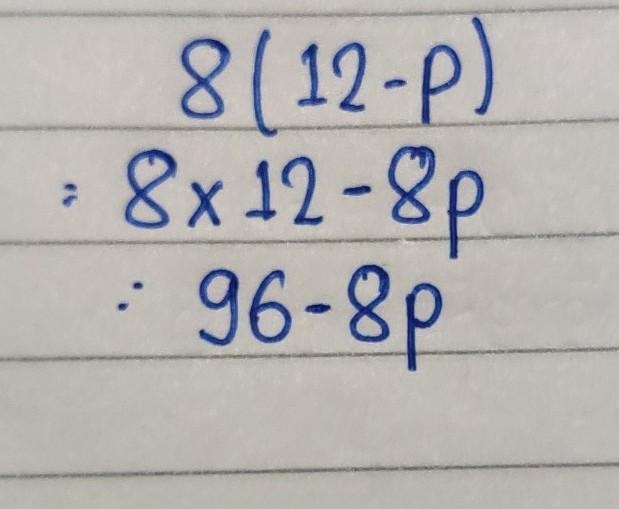 8(12-p)
= 8x12-8p
∴ 96-8p